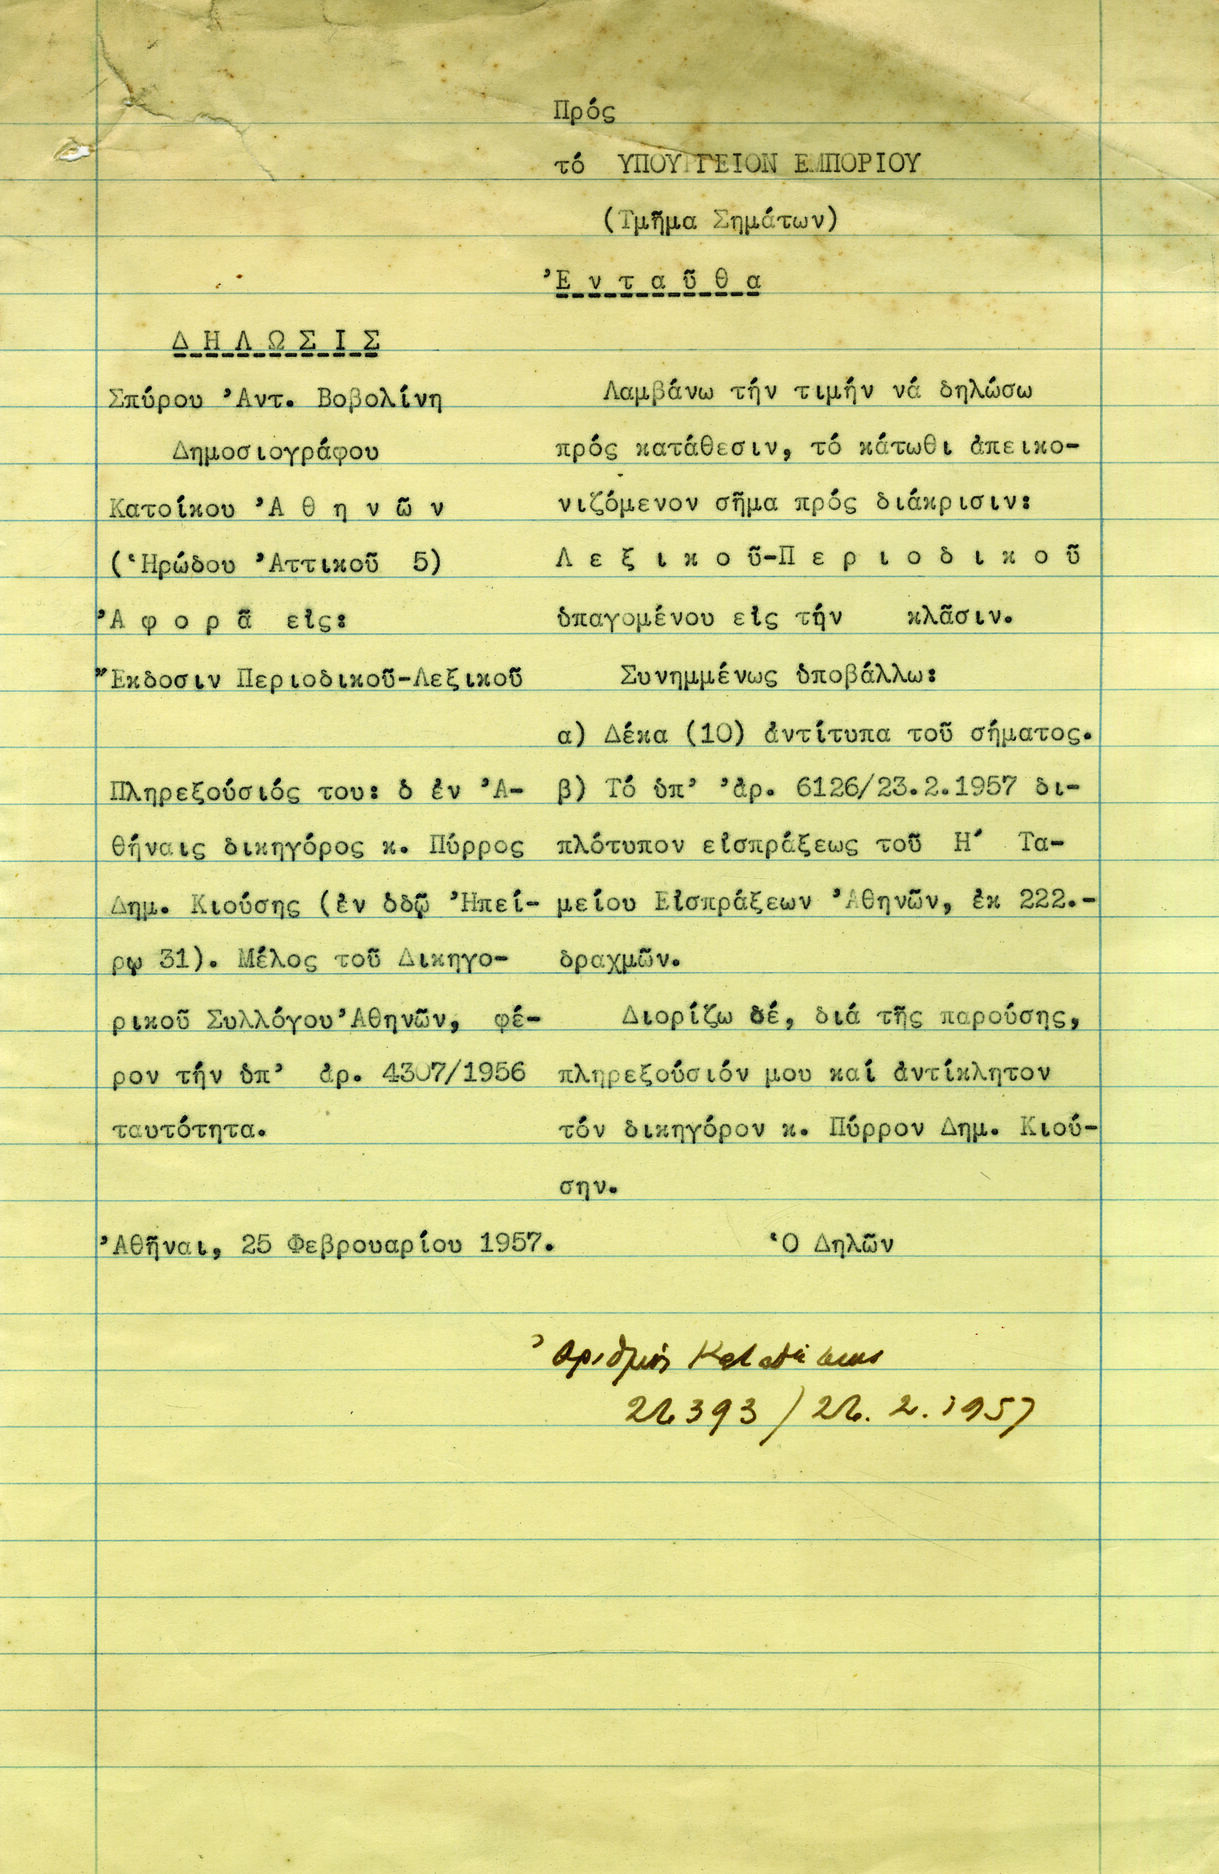 Πρός
τό ΥΠΟΥΡΓΕΙΟΝ ΕΜΠΟΡΙΟΥ
(Τμῆμα Σημάτων)
Ἐ ν τ α ῦ θ α
Δ Η Λ Ω Σ Ι Σ
Σπύρου Ἀντ. Βοβολίνη
Δημοσιογράφου
Κατοίκου Ἀ θ η ν ῶ ν
(Ἡρώδου Ἀττικοῦ 5)
Ἀ φ ο ρ ᾶ εἰς:
Ἔκδοσιν Περιοδικοῦ-Λεξικοῦ
Πληρεξούσιός του: ὁ ἐν Ἀ-
θήναις δικηγόρος κ. Πύρρος
Δημ. Κιούσης (ἐν ὁδῷ Ἠπεί-
ρῳ 31). Μέλος τοῦ Δικηγο-
ρικοῦ Συλλόγου Ἀθηνῶν, φέ-
ρον τήν ὑπ' ἀρ. 4307/1956
ταυτότητα.
Ἀθῆναι, 25 Φεβρουαρίου 1957.
Λαμβάνω τήν τιμήν νά δηλώσω
πρός κατάθεσιν, τό κάτωθι ἀπεικο-
νιζόμενον σῆμα πρός διάκρισιν:
Λ ε ξ ι κ ο ῦ-Π ε ρ ι ο δ ι κ ο ῦ
ὑπαγομένου εἰς τήν κλᾶσιν.
Συνημμένως ὑποβάλλω:
α) Δέκα (10) ἀντίτυπα τοῦ σήματος.
β) Τό ὑπ' ἀρ. 6126/23.2.1957 δι-
πλότυπον εἰσπράξεως τοῦ Η´ Τα-
μείου Εἰσπράξεων Ἀθηνῶν, ἐκ 222.-
δραχμῶν.
Διορίζω δέ, διά τῆς παρούσης,
πληρεξούσιόν μου καί ἀντίκλητον
τόν δικηγόρον κ. Πύρρον Δημ. Κιού-
σην.
Ὁ Δηλῶν
Ἀριθμός Καταθέσεως
26393/26.2.1957